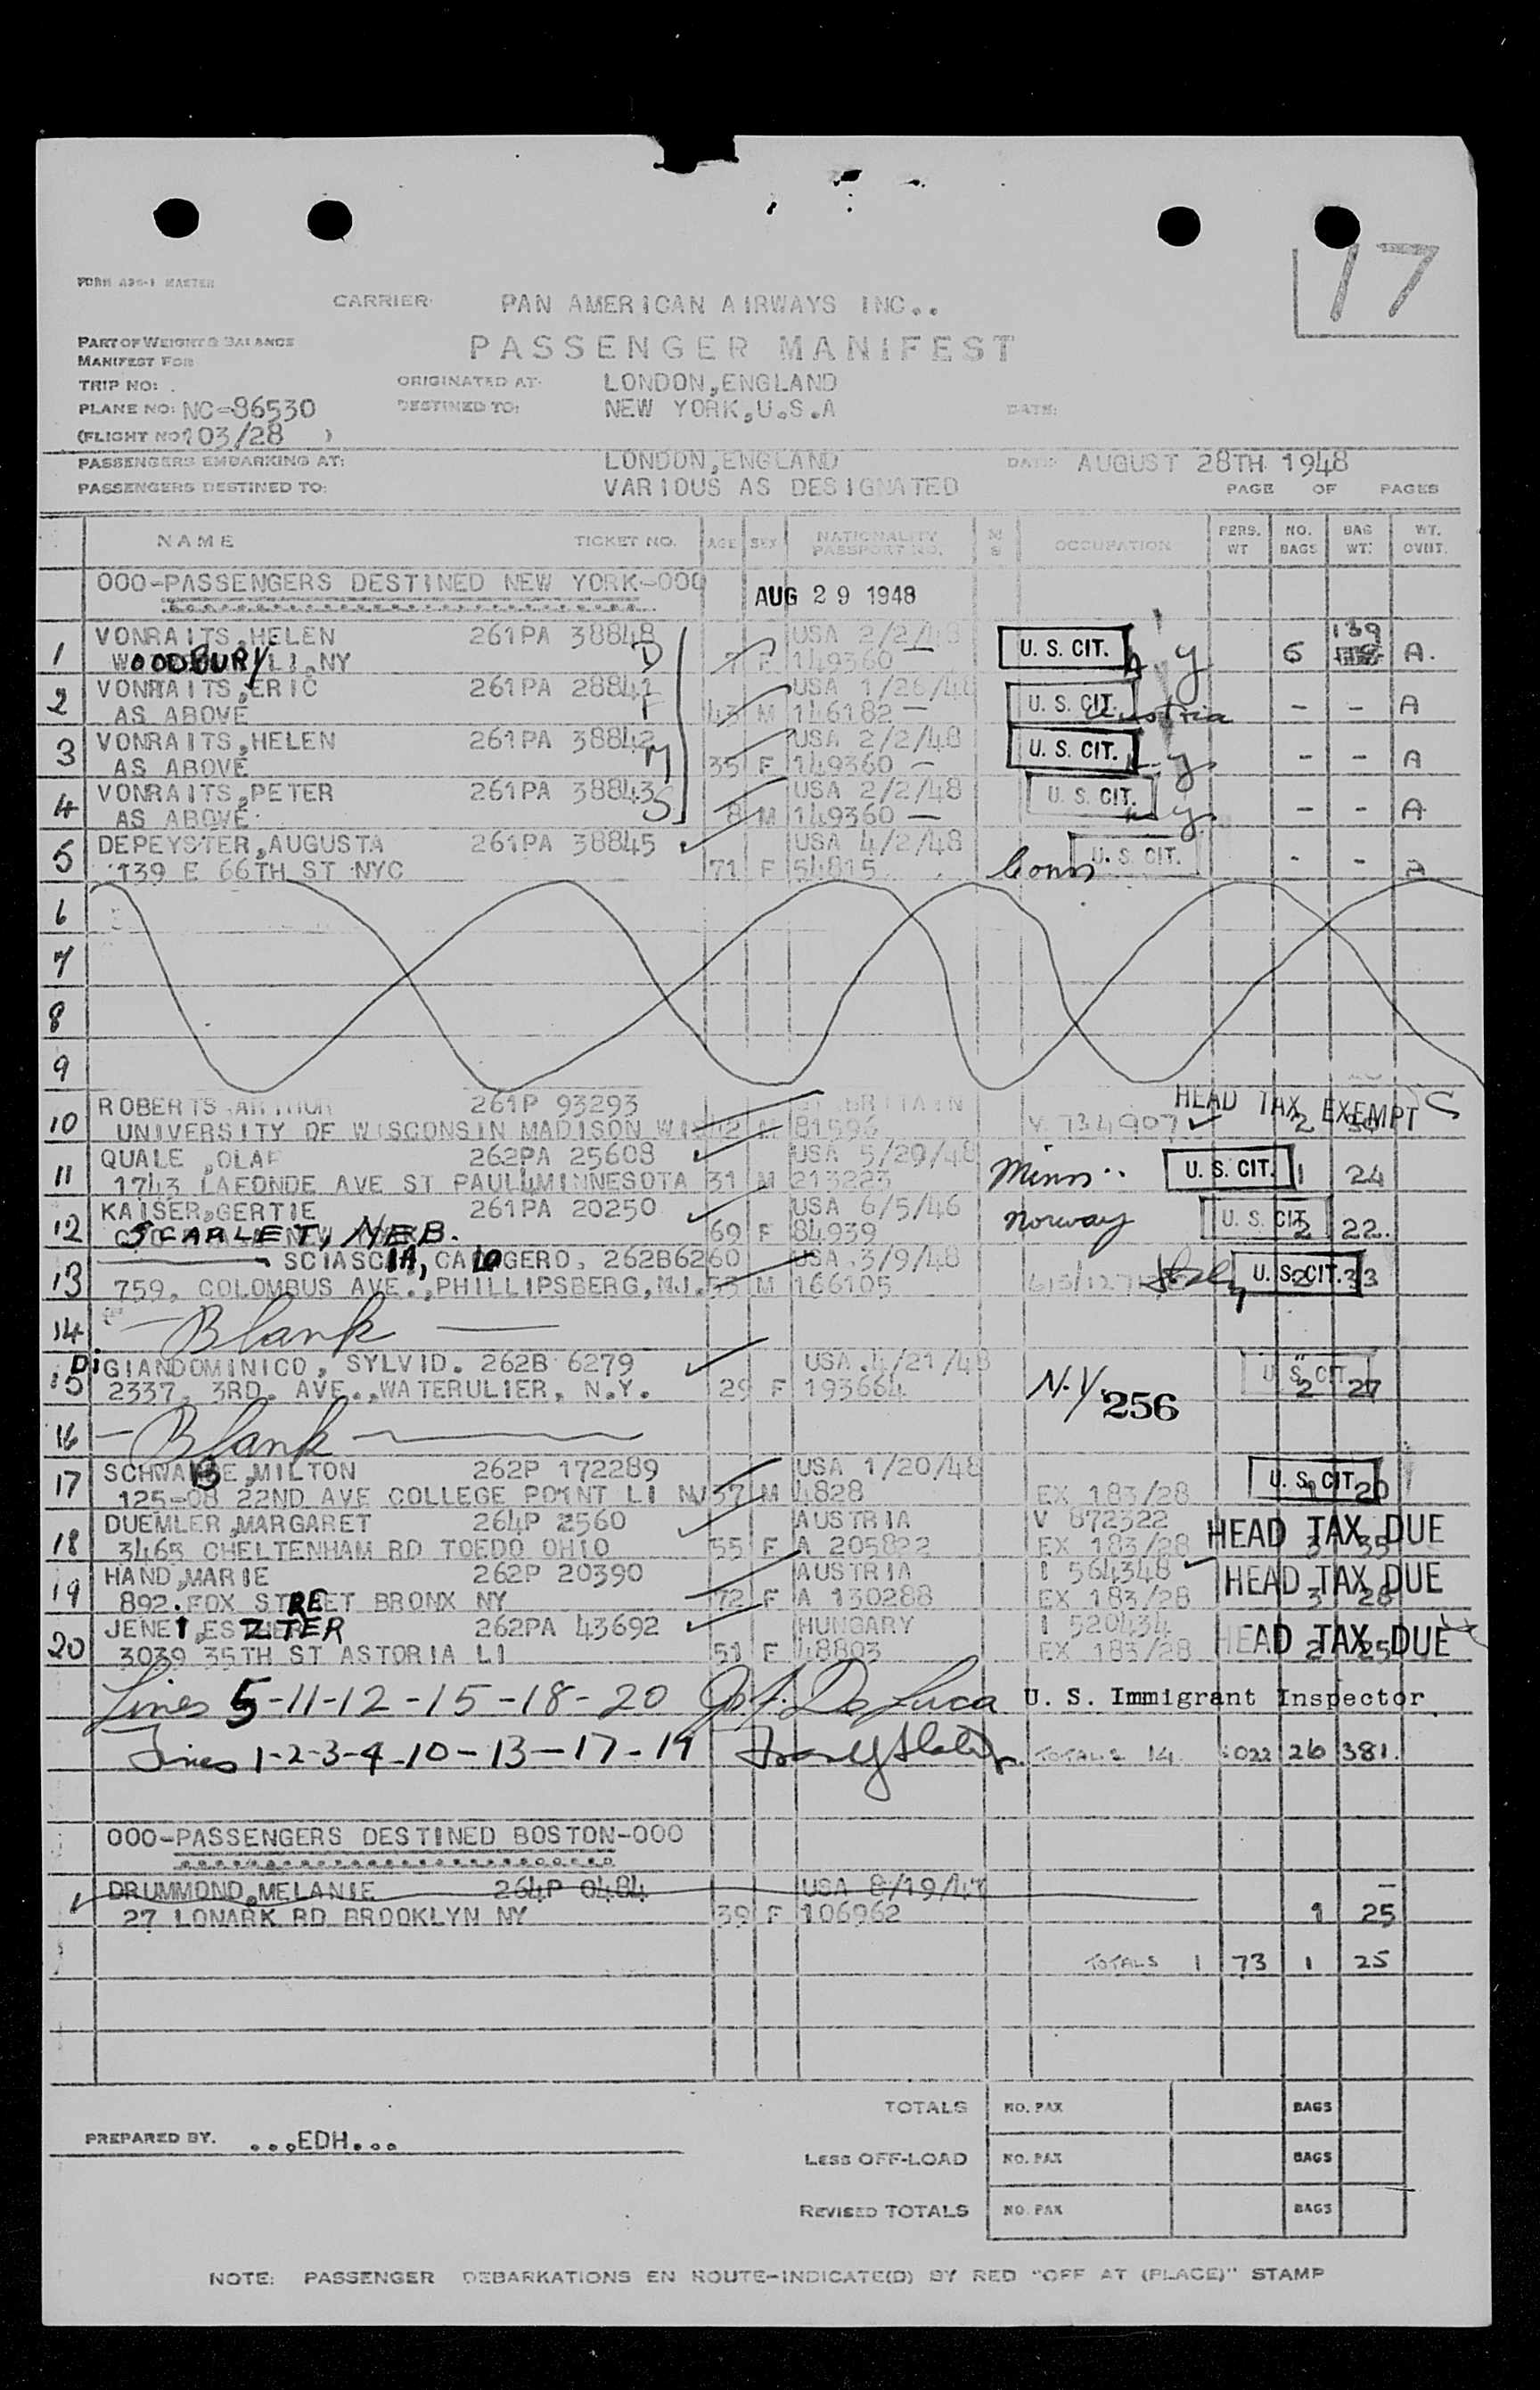 17
FORM A26-1 MASTER
CARRIER: PAN AMERICAN AIRWAYS INC..
PART OF WEIGHT & BALANCE
MANIFEST FOR
PASSENGER MANIFEST
TRIP NO: ORIGINATED AT: LONDON,ENGLAND
PLANE NO: NC-86530 DESTINED TO: NEW YORK,U.S.A DATE:
(FLIGHT NO 103/28 )
PASSENGERS EMBARKING AT: LONDON,ENGLAND DATE: AUGUST 28TH 1948
PASSENGERS DESTINED TO: VARIOUS AS DESIGNATED PAGE OF PAGES
NAME TICKET NO. AGE SEX NATIONALITY PASSPORT NO. M S OCCUPATION PERS. WT NO. BAGS BAG WT. WT. OVHT.
000-PASSENGERS DESTINED NEW YORK-000 AUG 29 1948
1 VONRAITS,HELEN 261PA 38848 D USA 2/2/48 U. S. CIT. 139
WOODBURY LI,NY 7 F 149360 — N.Y 6 A.
2 VONRAITS,ERIC 261PA 28841 F USA 1/26/48 U. S. CIT.
AS ABOVE 43 M 146182 — Austria - - A
3 VONRAITS,HELEN 261PA 38842 M USA 2/2/48 U. S. CIT.
AS ABOVE 35 F 149360 — N.Y. - - A
4 VONRAITS,PETER 261PA 38843 S USA 2/2/48 U. S. CIT.
AS ABOVE 8 M 149360 — N.Y. - - A
5 DEPEYSTER,AUGUSTA 261PA 38845 USA 4/2/48 U. S. CIT.
139 E 66TH ST NYC 71 F 54815 Conn - - A
6
7
8
9
10 ROBERTS,ARTHUR 261P 93293 BRITAIN HEAD TAX EXEMPT
UNIVERSITY OF WISCONSIN MADISON M 81596 V 734907 2
11 QUALE ,OLAF 262PA 25608 USA 5/20/48 Minn.. U. S. CIT.
1743 LAFONDE AVE ST PAUL4MINNESOTA 31 M 213223 1 24
12 KAISER,GERTIE 261PA 20250 USA 6/5/46 Norway U. S. CIT.
SCARLET, NEB. 69 F 84939 2 22.
13 SCIASCIA, CALOGERO. 262B6260 USA.3/9/48 Italy U. S. CIT.
759, COLOMBUS AVE.,PHILLIPSBERG,NJ. 53 M 166105 2 33
14 Blank
15 DiGIANDOMINICO, SYLVID. 262B 6279 USA.4/21/48 U. S. CIT.
2337, 3RD. AVE.,WATERULIER, N.Y. 29 F 193664 N.Y. 256 2 27
16 — Blank
17 SCHWABE,MILTON 262P 172289 USA 1/20/48 U. S. CIT.
125-08 22ND AVE COLLEGE POINT LI NY 37 M 4828 EX 183/28 1 20
18 DUEMLER,MARGARET 264P 2560 AUSTRIA V 872322 HEAD TAX DUE
3465 CHELTENHAM RD TOEDO OHIO 55 F A 205822 EX 183/28 3 35
19 HAND,MARIE 262P 20390 AUSTRIA I 564348 HEAD TAX DUE
892.FOX STREET BRONX NY 72 F A 130288 EX 183/28 3 28
20 JENEI,ESZTER 262PA 43692 HUNGARY I 520434 HEAD TAX DUE
3039 35TH ST ASTORIA LI 51 F 48803 EX 183/28 2 25
Lines 5-11-12-15-18-20 Jos. F. De Luca U. S. Immigrant Inspector
Lines 1-2-3-4-10-13-17-19 TOTALS 14 1022 26 381.
000-PASSENGERS DESTINED BOSTON-000
DRUMMOND,MELANIE 264P 0484 USA 8/19/47 —
27 LONARK RD BROOKLYN NY 39 F 106962 1 25
TOTALS 1 73 1 25
TOTALS NO. PAX BAGS
PREPARED BY. ...EDH...
LESS OFF-LOAD NO. PAX BAGS
REVISED TOTALS NO. PAX BAGS
NOTE: PASSENGER DEBARKATIONS EN ROUTE-INDICATE(D) BY RED "OFF AT (PLACE)" STAMP